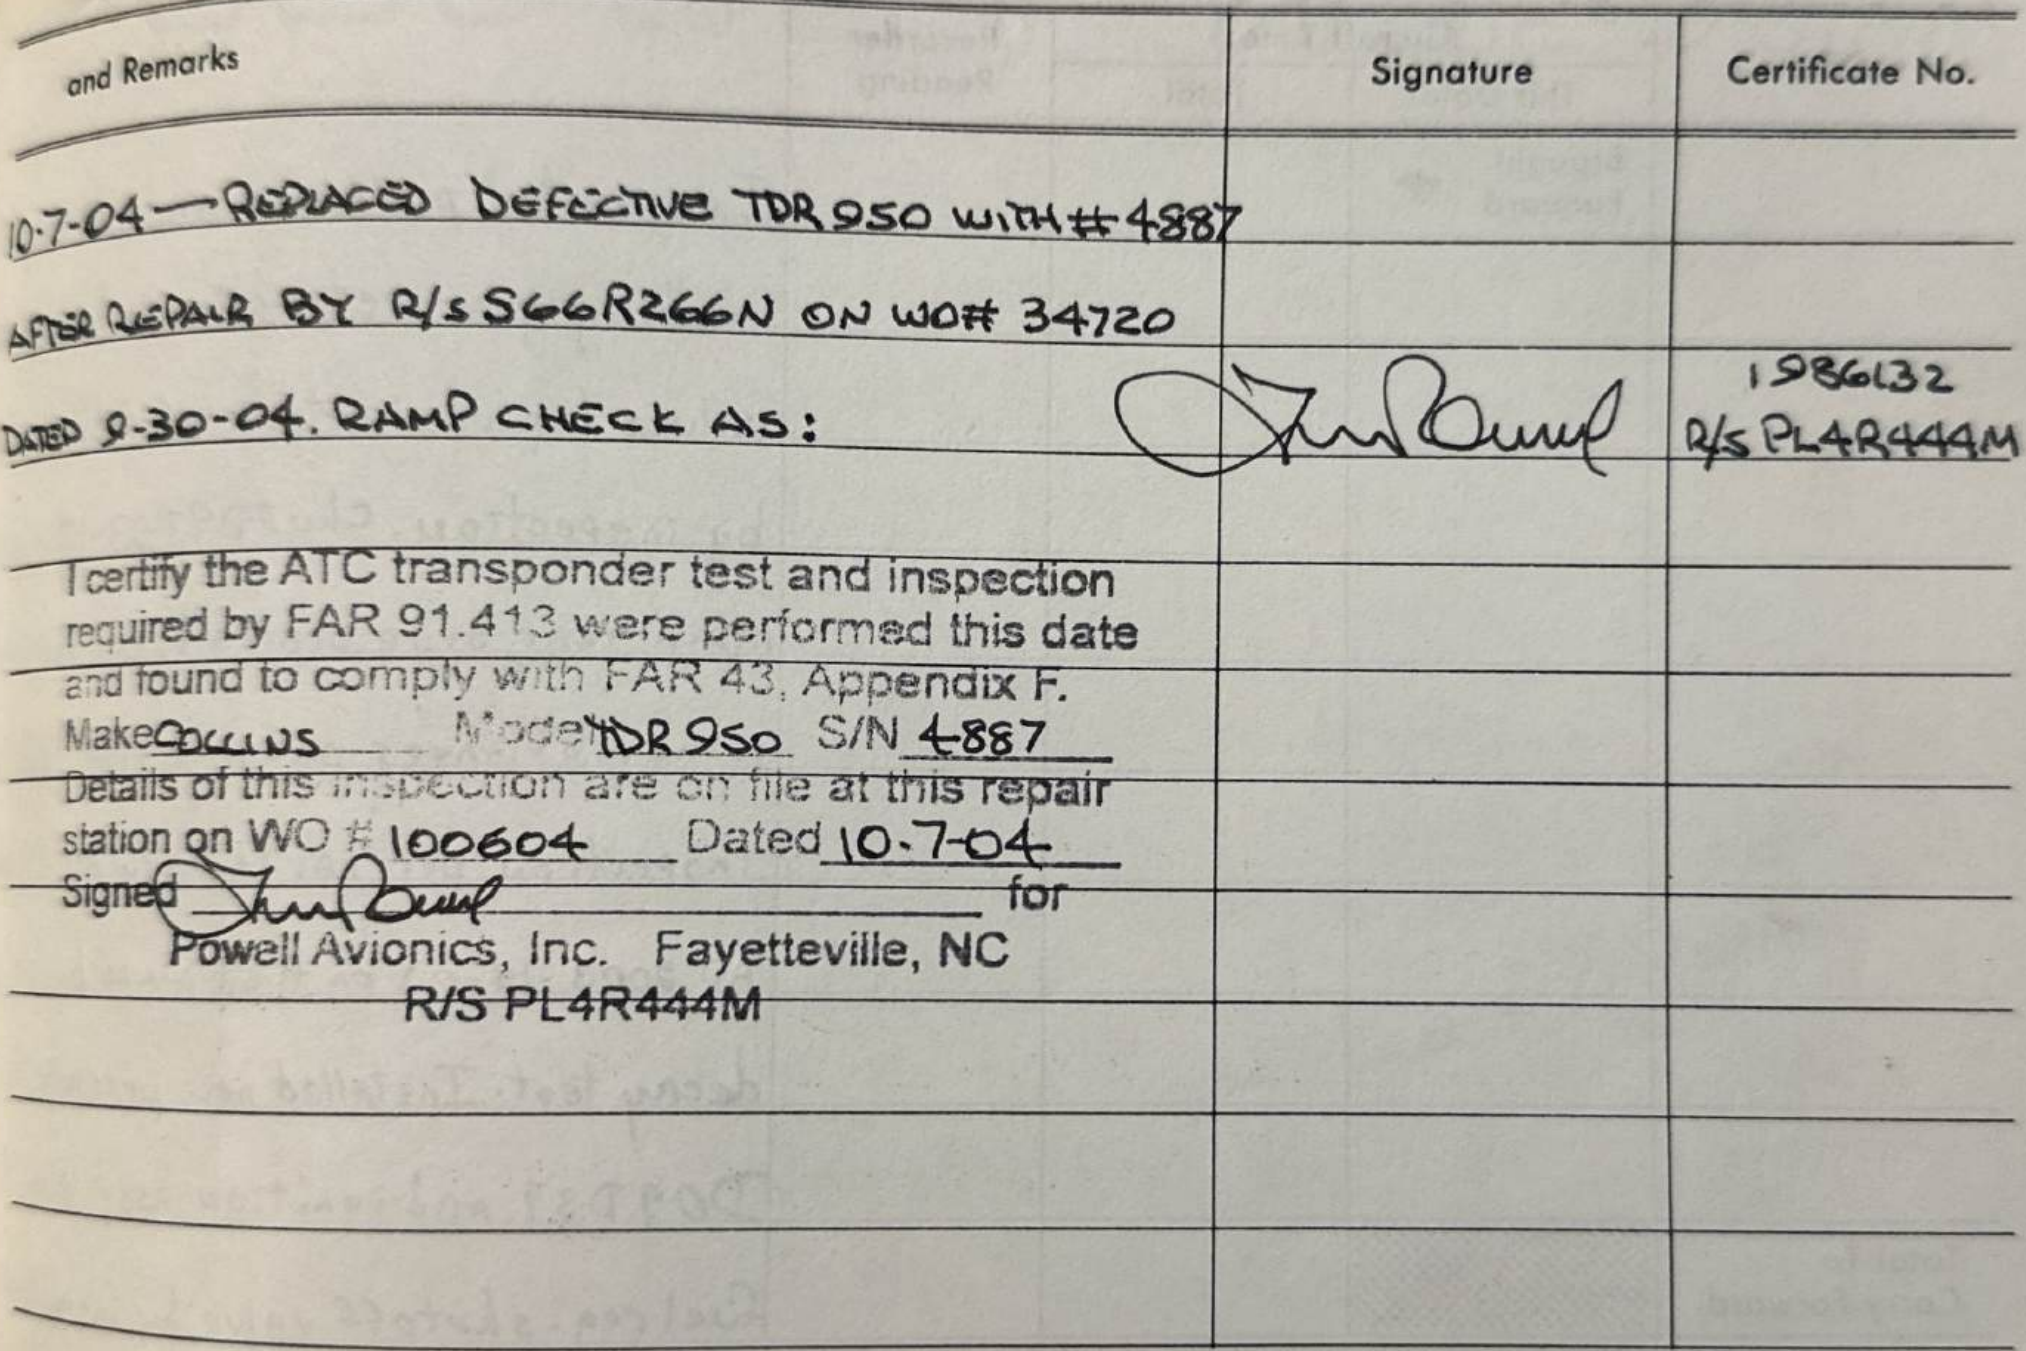 and Remarks Signature Certificate No.
10-7-04 — REPLACED DEFECTIVE TDR 950 WITH # 4887
AFTER REPAIR BY R/S S66R266N ON WO# 34720
1986132
DATED 9-30-04. RAMP CHECK AS: R/S PL4R444M
I certify the ATC transponder test and inspection
required by FAR 91.413 were performed this date
and found to comply with FAR 43, Appendix F.
Make COLLINS Model TDR 950 S/N 4887
Details of this inspection are on file at this repair
station on WO # 100604 Dated 10-7-04
Signed for
Powell Avionics, Inc. Fayetteville, NC
R/S PL4R444M